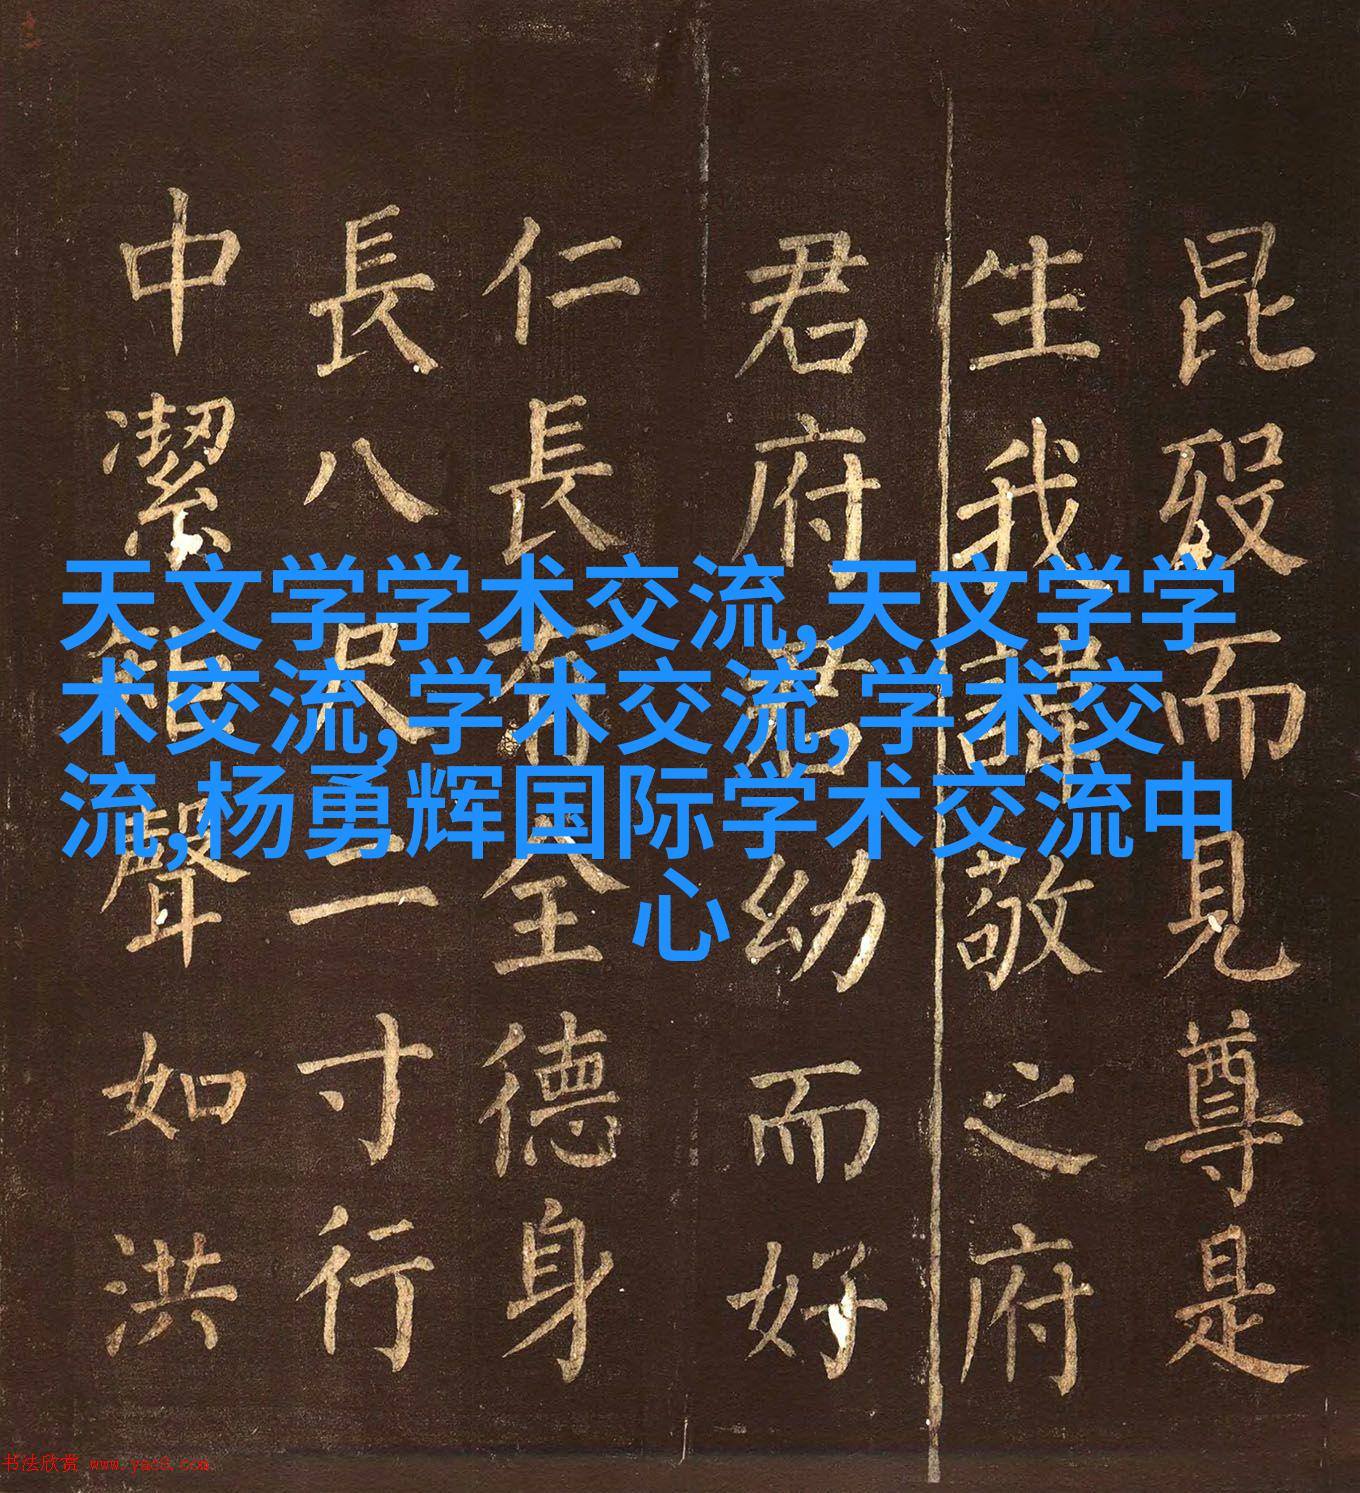 天文学学术交流,天文学学
术交流,学术交流,学术交
流,杨勇辉国际学术交流中
心
昆歿而見尊是
生我諱敬之府
君府君幼而好
仁長有全德身
長八尺二寸行
中潔聲如洪
书法欣赏 www.yac8.com